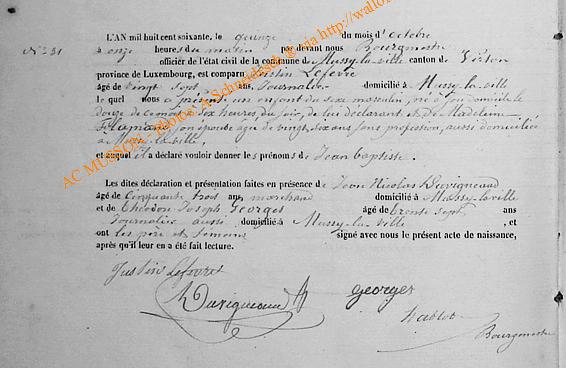 N° 31
L'AN mil huit cent soixante, le quinze du mois d'octobre
à onze heures du matin par devant nous Bourgmestre
officier de l'état civil de la commune de Mussy-la-ville canton de Virton
province de Luxembourg, est comparu Justin Lefevre
âgé de vingt sept ans, Journalier domicilié à Mussy-la-ville
lequel nous a présenté un enfant du sexe masculin, né à son domicile le
douze de ce mois à six heures du soir, de lui déclarant et de Madeleine
son épouse agé de vingt six ans sans profession, aussi domiciliée
à Mussy-la-ville.
et auquel il a déclaré vouloir donner les prénoms de Jean baptiste.
Les dites déclaration et présentation faites en présence de Jean Nicolas Duvigneaud
âgé de Cinquante trois ans, marchand domicilié à Mussy-la-ville
et de Théodore Joseph Georges âgé de trente sept ans
Journalier aussi domicilié à Mussy-la-ville, et
ont les père et témoins signé avec nous le présent acte de naissance,
après qu'il leur en a été fait lecture.
Justin Lefevre
Duvigneaud georges
Bourgmestre
AC MUSSON - Photos: A Schmedesch @ via http://wallo